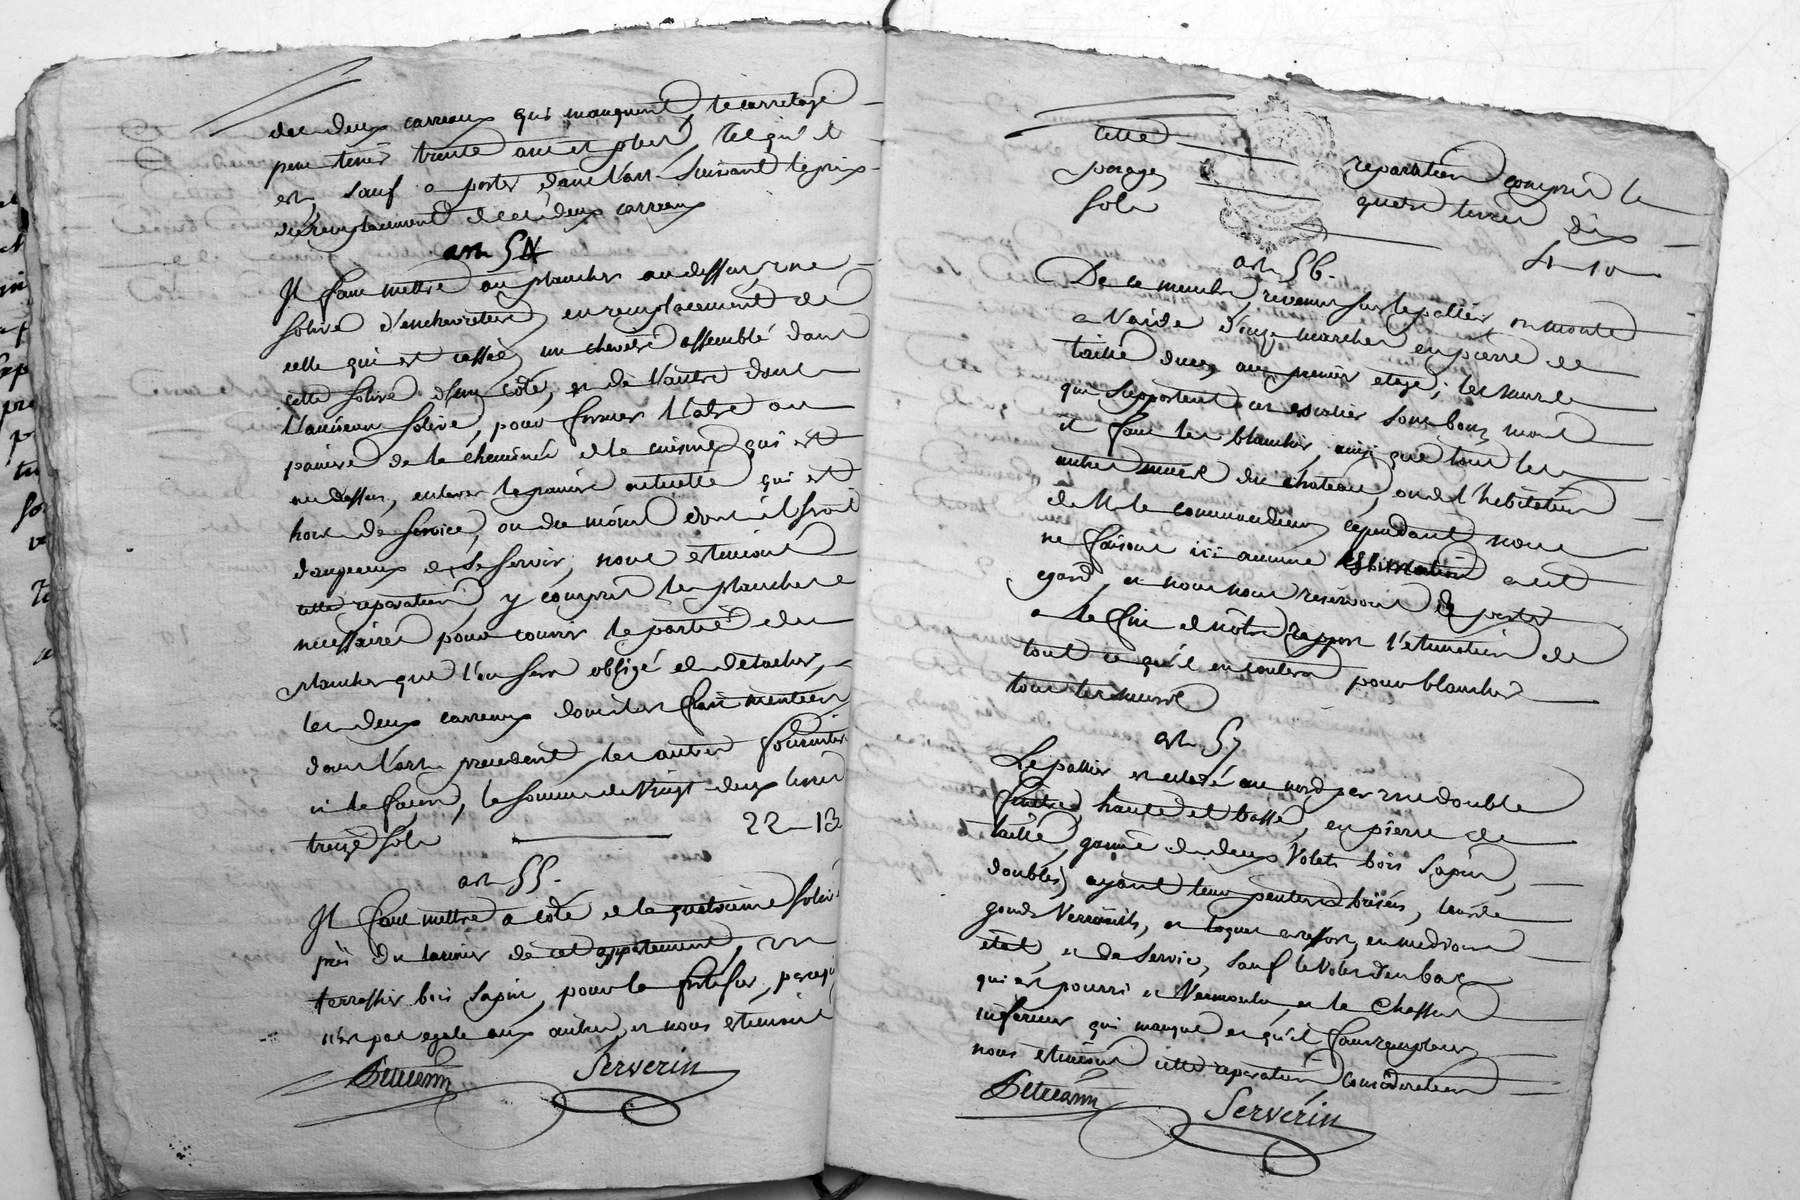 des deux carreaux qui manquent, le carrelage
peut tenir trente ans et plus, tel qu'il
est, sauf a porter dans l'art. suivant le prix
du remplacement de ces deux carreaux
art. 54
Il faut mettre au plancher au dessus, une
solive d'enchevetrure, en remplacement de
celle qui est cassée, un chevetre assemblé dans
cette solive d'un côté, et de l'autre dans
l'ancienne solive, pour former l'atre ou
panire de la cheminée de la cuisine qui est
au dessus, enlever le panire actuelle qui est
hors de service, ou du moins dont il seroit
dangereux de se servir, nous estimons
cette reparation, y compris les planches
necessaires pour couvrir la partie du
plancher que l'on sera obligé de detacher,
les deux carreaux dont est fait mention
dans l'art. precedent, les autres fournitures
et la façon, la somme de vingt-deux livres
treize sols 22-13
art. 55.
Il faut mettre a côté de la quatrieme solive
près du larmier de cet appartement, un
terrassier bois sapin, pour la fortifier, parcequ'
n'est pas egale aux autres, et nous estimons
Serverin
cette reparation compris le
posage, quatre livres dix
sols 4-10
art. 56.
De ce membre, revenus sur le pallier, on monte
a l'aide d'onze marches en pierre de
taille dure, au premier etage; les murs
qui supportent cet escalier sont bons, mais
il faut les blanchir, ainsi que tous les
autres murs du château, ou de l'habitation
de M. le commandeur, cependant nous
ne faisons ici aucune estimation a cet
egard, et nous nous reservons de porter
a la fin de nôtre rapport l'estimation de
tout ce qu'il en coutera pour blanchir
tous les murs
art. 57
Le pallier est eclairé au nord par une double
fenêtre, haute et basse, en pierre de
taille, garnie de deux volets bois sapin,
doublés, ayant leurs pentures brisées, leurs
gonds verrouils, et loquet a ressort, en mediocre
état, et de service, sauf le volet d'en bas
qui est pourri et vermoulu, et le chassis
inférieur qui manque et qu'il faut remplacer
nous estimons cette reparation consideration
Serverin